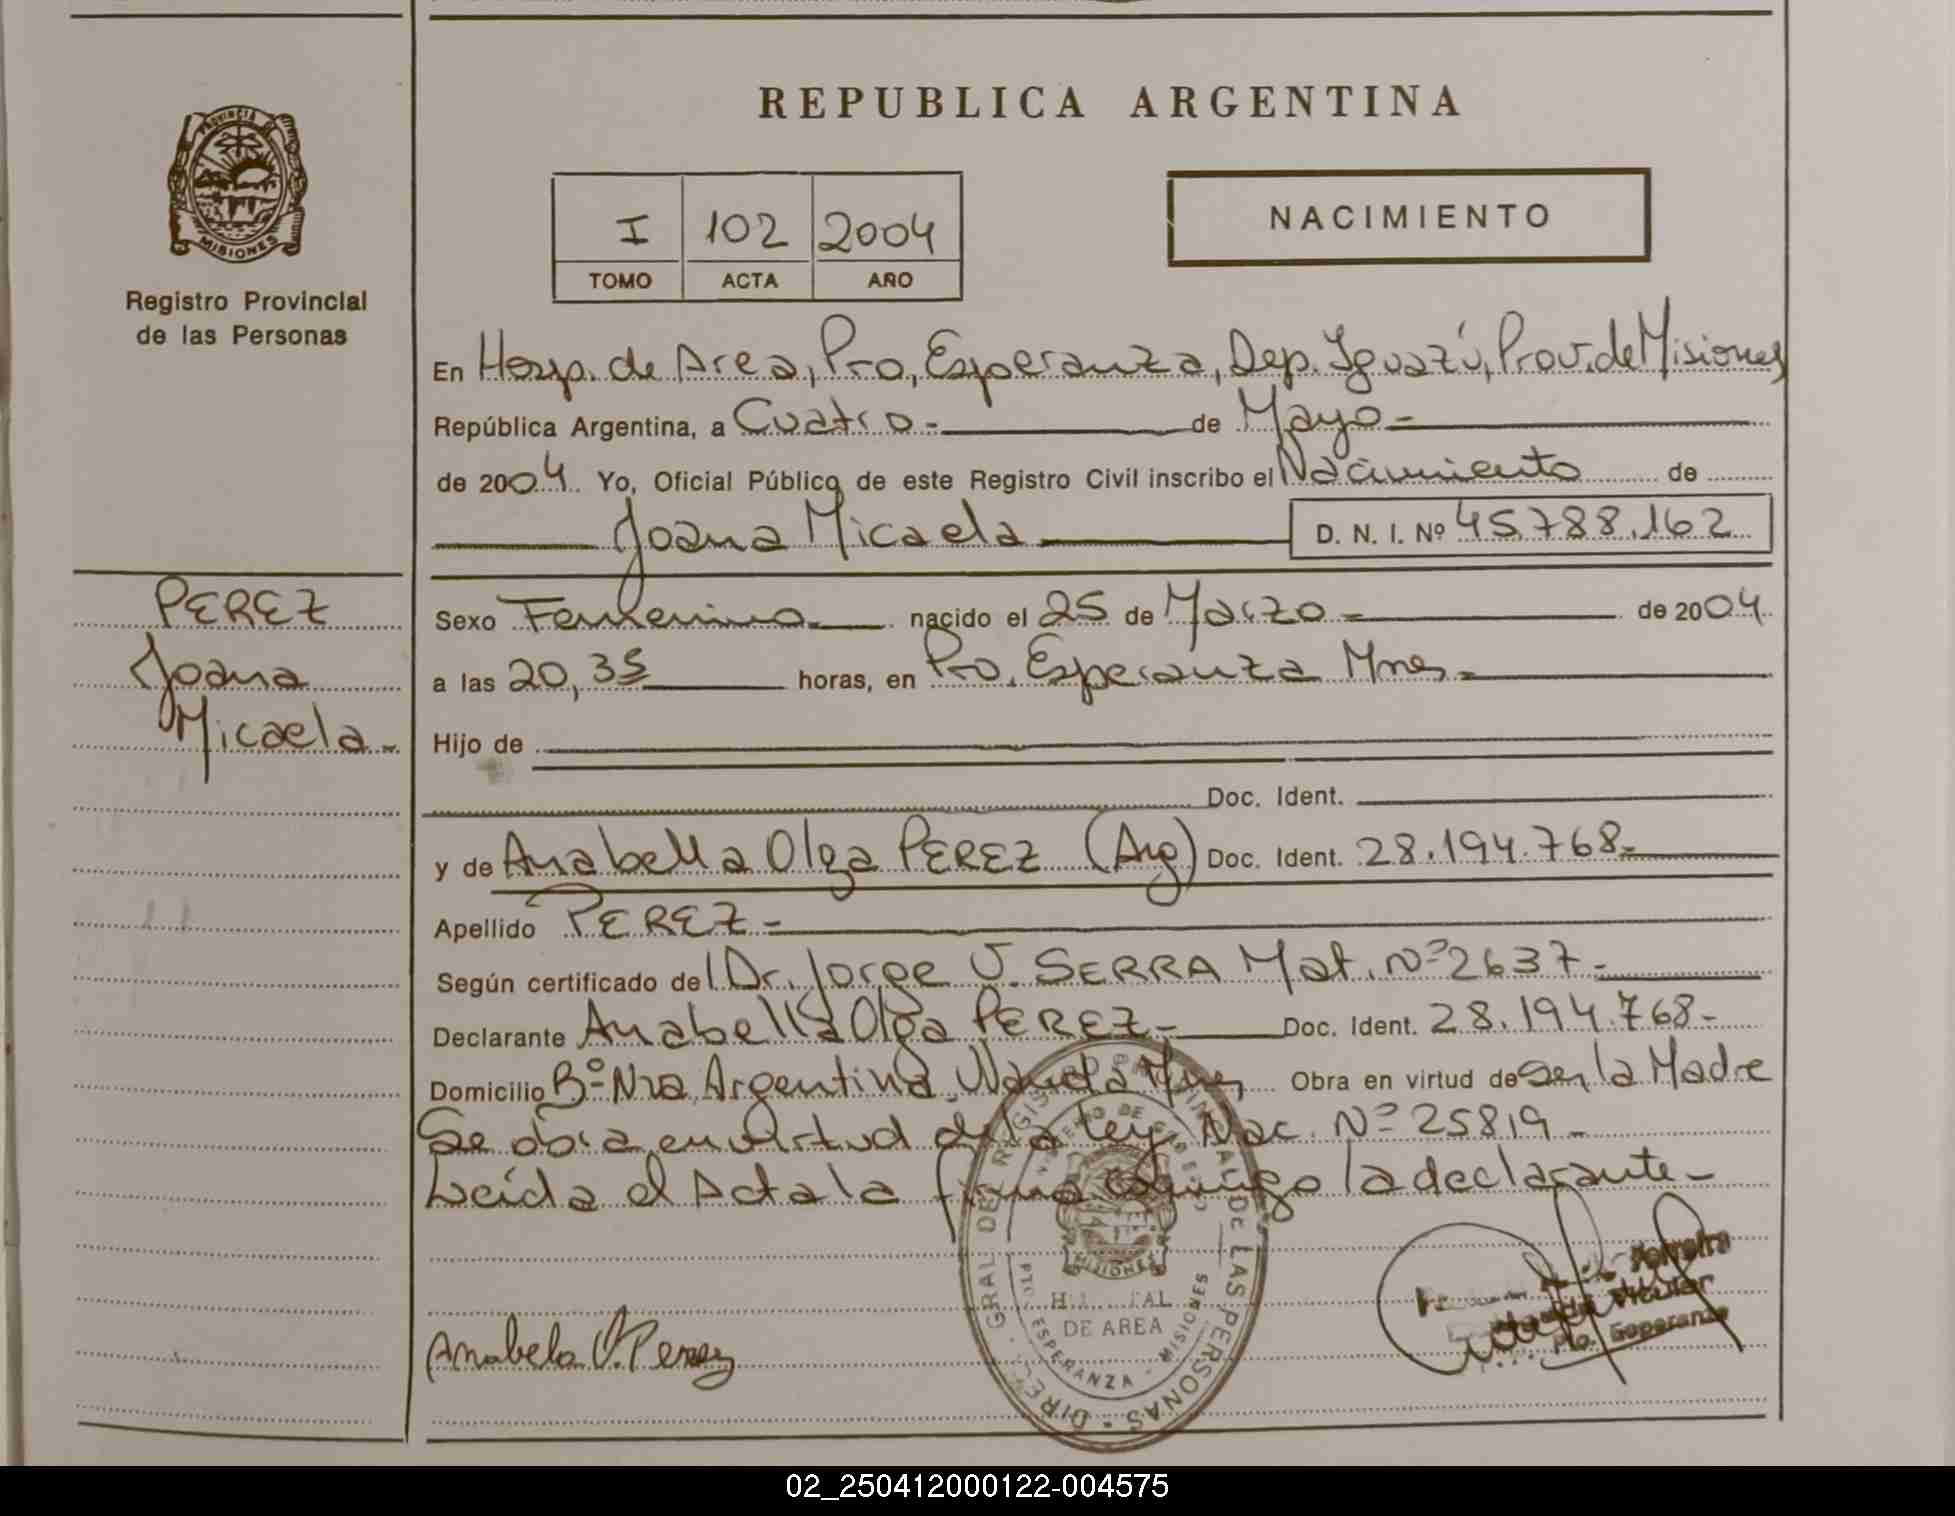 REPUBLICA ARGENTINA
PROVINCIA DE
MISIONES
Registro Provincial
de las Personas
I 102 2004
TOMO ACTA AÑO
NACIMIENTO
En Hosp. de Area, Pto, Esperanza, Dep. Iguazú, Prov. de Misiones
República Argentina, a Cuatro.- de Mayo-
de 2004. Yo, Oficial Público de este Registro Civil inscribo el Nacimiento de
Joana Micaela D. N. I. Nº 45.788.162
PEREZ
Joana
Micaela-
Sexo Femenino nacido el 25 de Marzo- de 2004
a las 20,35 horas, en Pto. Esperanza Mnes-
Hijo de
Doc. Ident.
y de Anabella Olga PEREZ (Arg) Doc. Ident. 28.194.768-
Apellido PEREZ-
Según certificado del Dr. Jorge V. SERRA Mat. Nº 2637-
Declarante Anabella Olga PEREZ- Doc. Ident. 28.194.768-
Domicilio Bº Nva. Argentina, Wanda Mnes Obra en virtud de Ser la Madre
Se obra en virtud de la Ley Nac. Nº 25819-
Leída el Acta la firma conmigo la declarante-
Anabela O. Perez
DIREC. GRAL DEL REGISTRO PROVINCIAL DE LAS PERSONAS
MISIONES
DE AREA
PTO. ESPERANZA - MISIONES
Ferreira
Titular
Pto. Esperanza
02_250412000122-004575